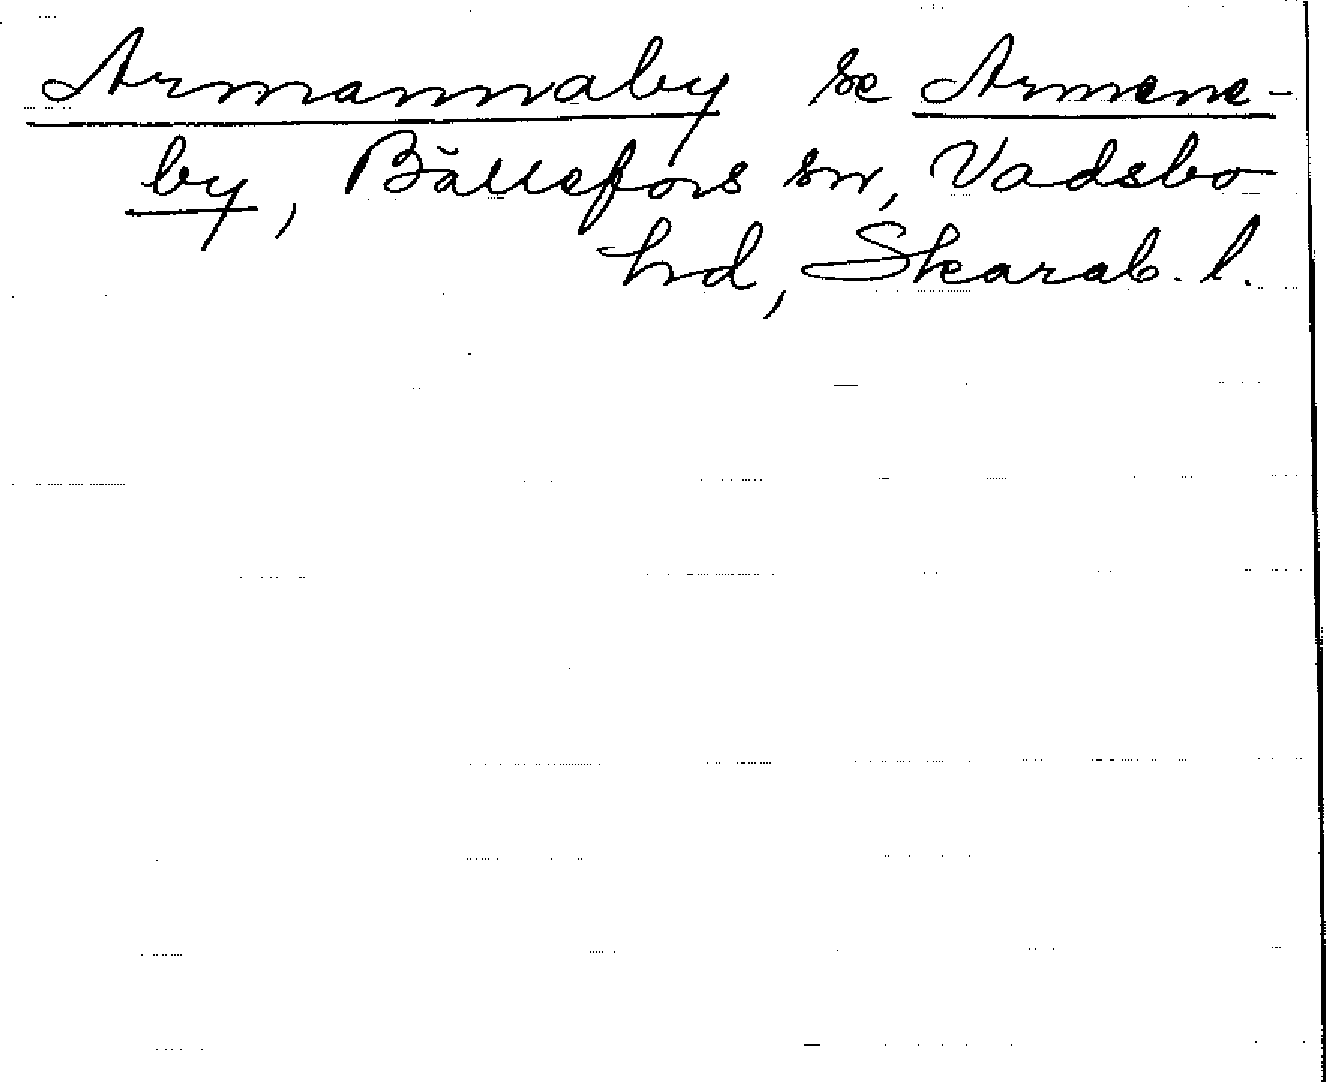 Armannaby se Armene-
by, Bällefors sn, Vadsbo
hd, Skarab. l.